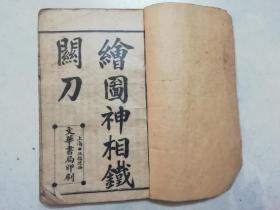 繪圖神相鐵
關刀
上海
文華書局印刷